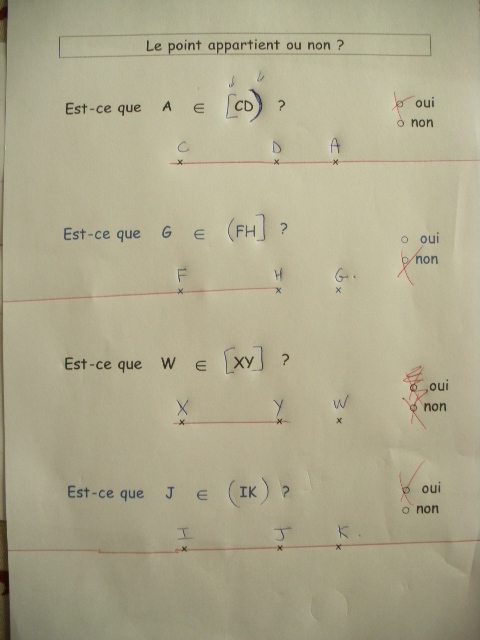 Le point appartient ou non ?
Est-ce que A ∈ [CD) ?
oui
non
C D A
Est-ce que G ∈ (FH] ?
oui
non
F H G.
Est-ce que W ∈ [XY] ?
oui
non
X Y W
Est-ce que J ∈ (IK) ?
oui
non
I J K.